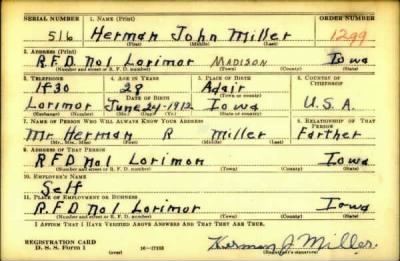 SERIAL NUMBER 1. NAME (Print) ORDER NUMBER
516 Herman John Miller 1299
(First) (Middle) (Last)
2. ADDRESS (Print)
R.F.D. No1 Lorimor MADISON Iowa
(Number and street or R. F. D. number) (Town) (County) (State)
3. TELEPHONE 4. AGE IN YEARS 5. PLACE OF BIRTH 6. COUNTRY OF CITIZENSHIP
1F30 28 Adair
DATE OF BIRTH (Town or county)
Lorimor June 24-1912 Iowa U.S.A.
(Exchange) (Number) (Mo.) (Day) (Yr.) (State or country)
7. NAME OF PERSON WHO WILL ALWAYS KNOW YOUR ADDRESS 8. RELATIONSHIP OF THAT PERSON
Mr. Herman R Miller Farther
(Mr., Mrs., Miss) (First) (Middle) (Last)
9. ADDRESS OF THAT PERSON
RFD No1 Lorimon Iowa
(Number and street or R. F. D. number) (Town) (County) (State)
10. EMPLOYER'S NAME
Self
11. PLACE OF EMPLOYMENT OR BUSINESS
R.F.D. No1 Lorimor Iowa
(Number and street or R. F. D. number) (Town) (County) (State)
I AFFIRM THAT I HAVE VERIFIED ABOVE ANSWERS AND THAT THEY ARE TRUE.
REGISTRATION CARD
D. S. S. Form 1 (over) Herman J. Miller.
(Registrant's signature)